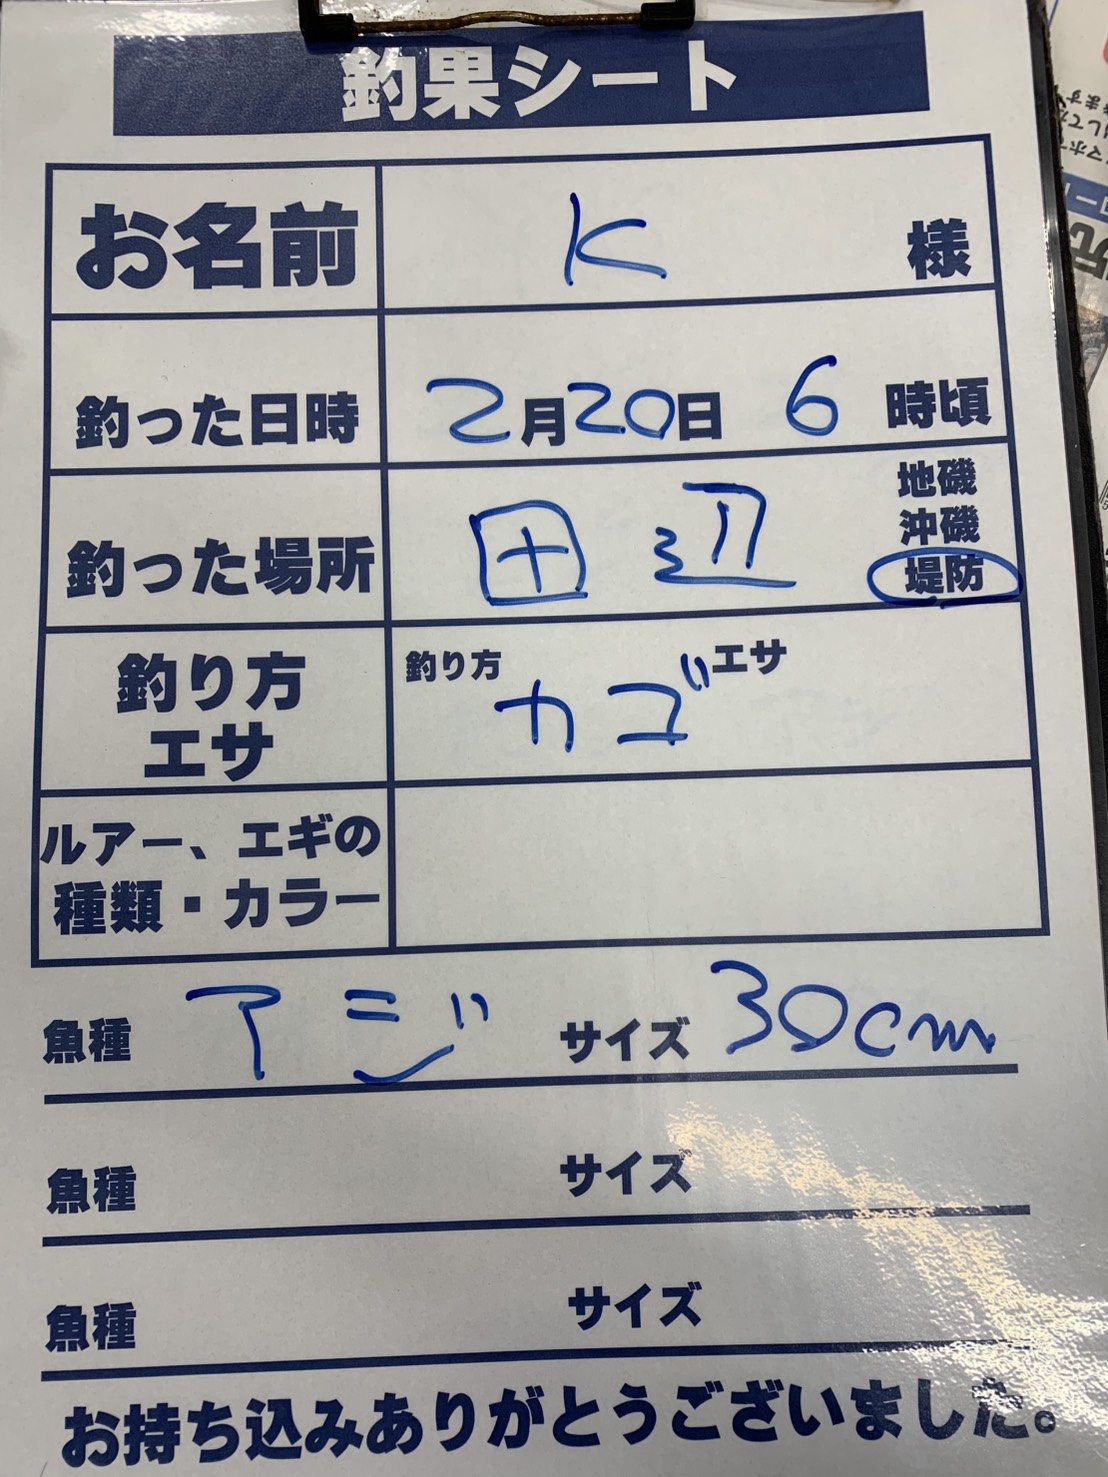 釣果シート
お名前 K 様
釣った日時 2月20日 6 時頃
釣った場所 田辺 地磯
沖磯
堤防
釣り方
エサ
釣り方 カゴ エサ
ルアー、エギの
種類・カラー
魚種 アジ サイズ 30cm
魚種 サイズ
魚種 サイズ
お持ち込みありがとうございました。